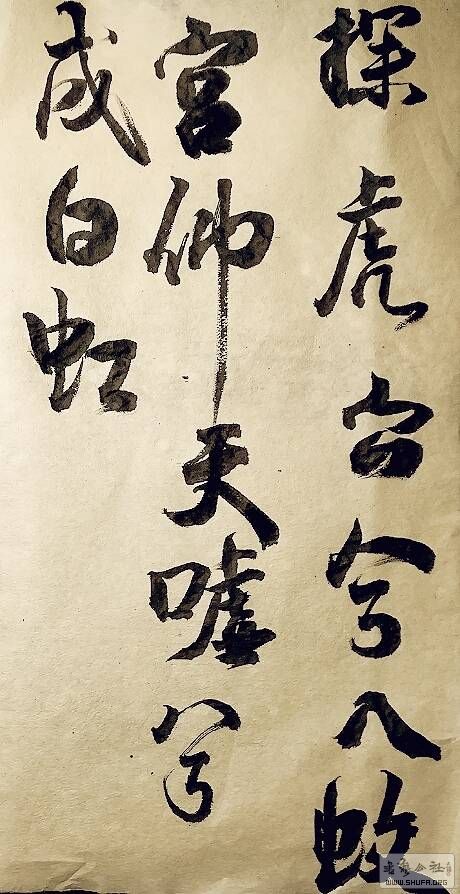 探虎穴兮入蛟
宮仰天嘘兮
成白虹
WWW.SHUFA.ORG